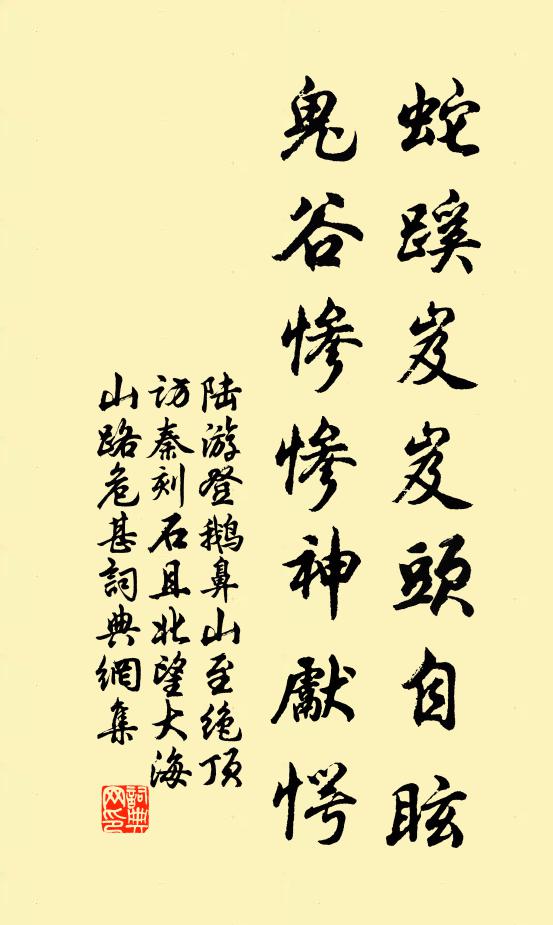 蛇蹊岌岌頭自眩
鬼谷惨惨神獻愕
陆游登鹅鼻山至绝顶
访秦刻石且北望大海
山路危甚詞典網集
詞典
网印